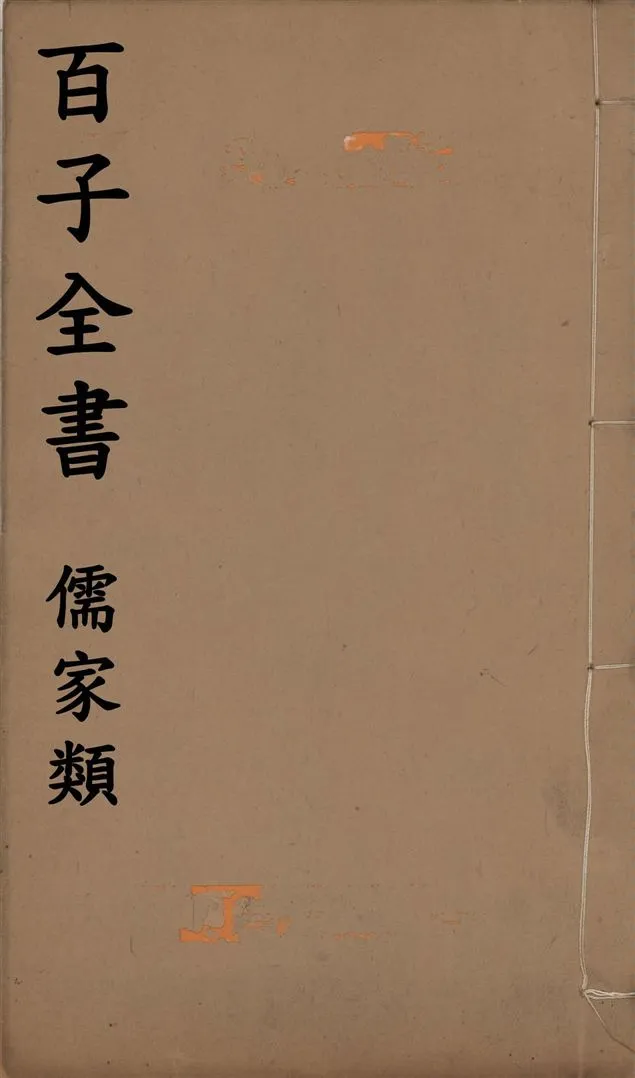 百子全書 儒家類